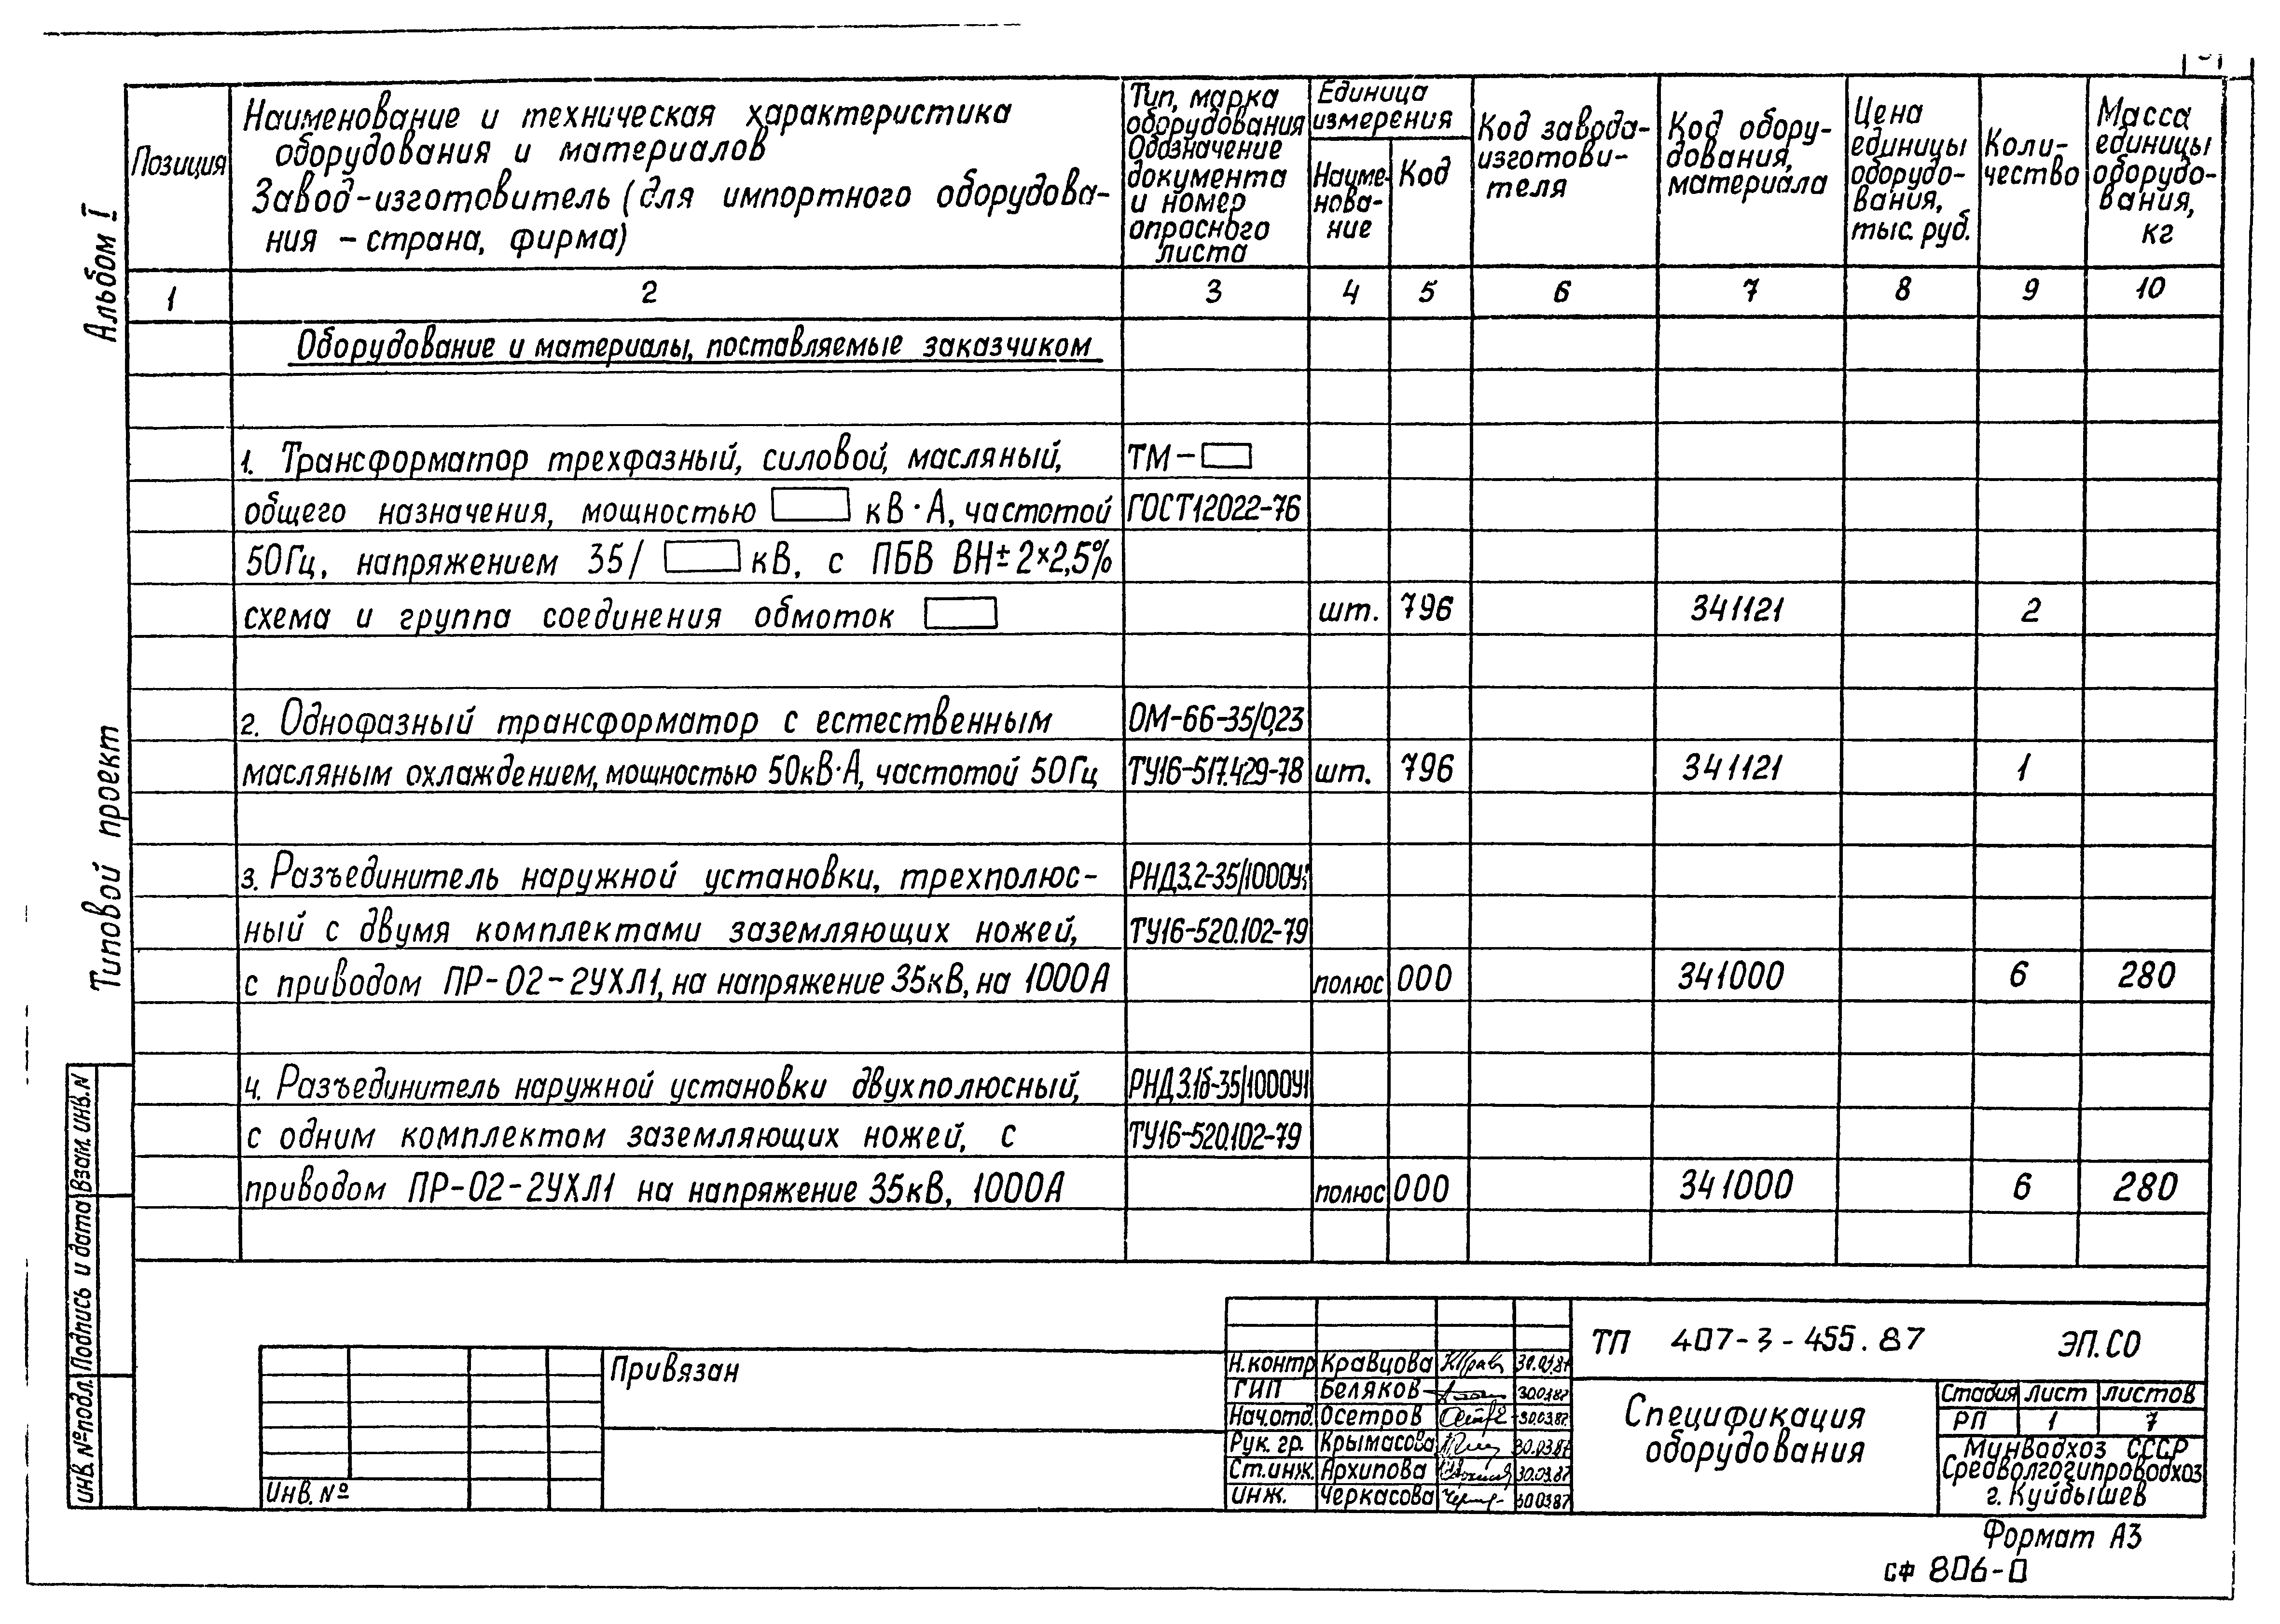 Альбом I
Типовой проект
Взам. инв. N
Подпись и дата
Инв. № подл.
Позиция
Наименование и техническая характеристика
оборудования и материалов
Завод-изготовитель (для импортного оборудова-
ния - страна, фирма)
Тип, марка
оборудования
Обозначение
документа
и номер
опросного
листа
Единица
измерения
Наиме-
нова-
ние
Код
Код завода-
изготови-
теля
Код обору-
дования,
материала
Цена
единицы
оборудо-
вания,
тыс. руб.
Коли-
чество
Масса
единицы
оборудо-
вания,
кг
1 2 3 4 5 6 7 8 9 10
Оборудование и материалы, поставляемые заказчиком
1. Трансформатор трехфазный, силовой, масляный, ТМ-
общего назначения, мощностью кВ·А, частотой ГОСТ12022-76
50Гц, напряжением 35/ кВ, с ПБВ ВН±2×2,5%
схема и группа соединения обмоток шт. 796 341121 2
2. Однофазный трансформатор с естественным ОМ-66-35/0,23
масляным охлаждением, мощностью 50кВ·А, частотой 50Гц ТУ16-517.429-78 шт. 796 341121 1
3. Разъединитель наружной установки, трехполюс-
ный с двумя комплектами заземляющих ножей, ТУ16-520.102-79
с приводом ПР-02-2УХЛ1, на напряжение 35кВ, на 1000А полюс 000 341000 6 280
4. Разъединитель наружной установки двухполюсный, РНДЗ.1б-35/1000У1
с одним комплектом заземляющих ножей, с ТУ16-520.102-79
приводом ПР-02-2УХЛ1 на напряжение 35кВ, 1000А полюс 000 341000 6 280
Привязан
Инв. №
Н.контр Кравцова
ГИП Беляков 30.03.87
Нач.отд. Осетров 30.03.87
Рук. гр. Крымасова 30.03.87
Ст.инж. Архипова 30.03.87
Инж. Черкасова 30.03.87
ТП 407-3-455.87 ЭП.СО
Спецификация
оборудования
Стадия Лист Листов
РП 1 7
Минводхоз СССР
Средволгогипроводхоз
г. Куйбышев
Формат А3
СФ 806-0